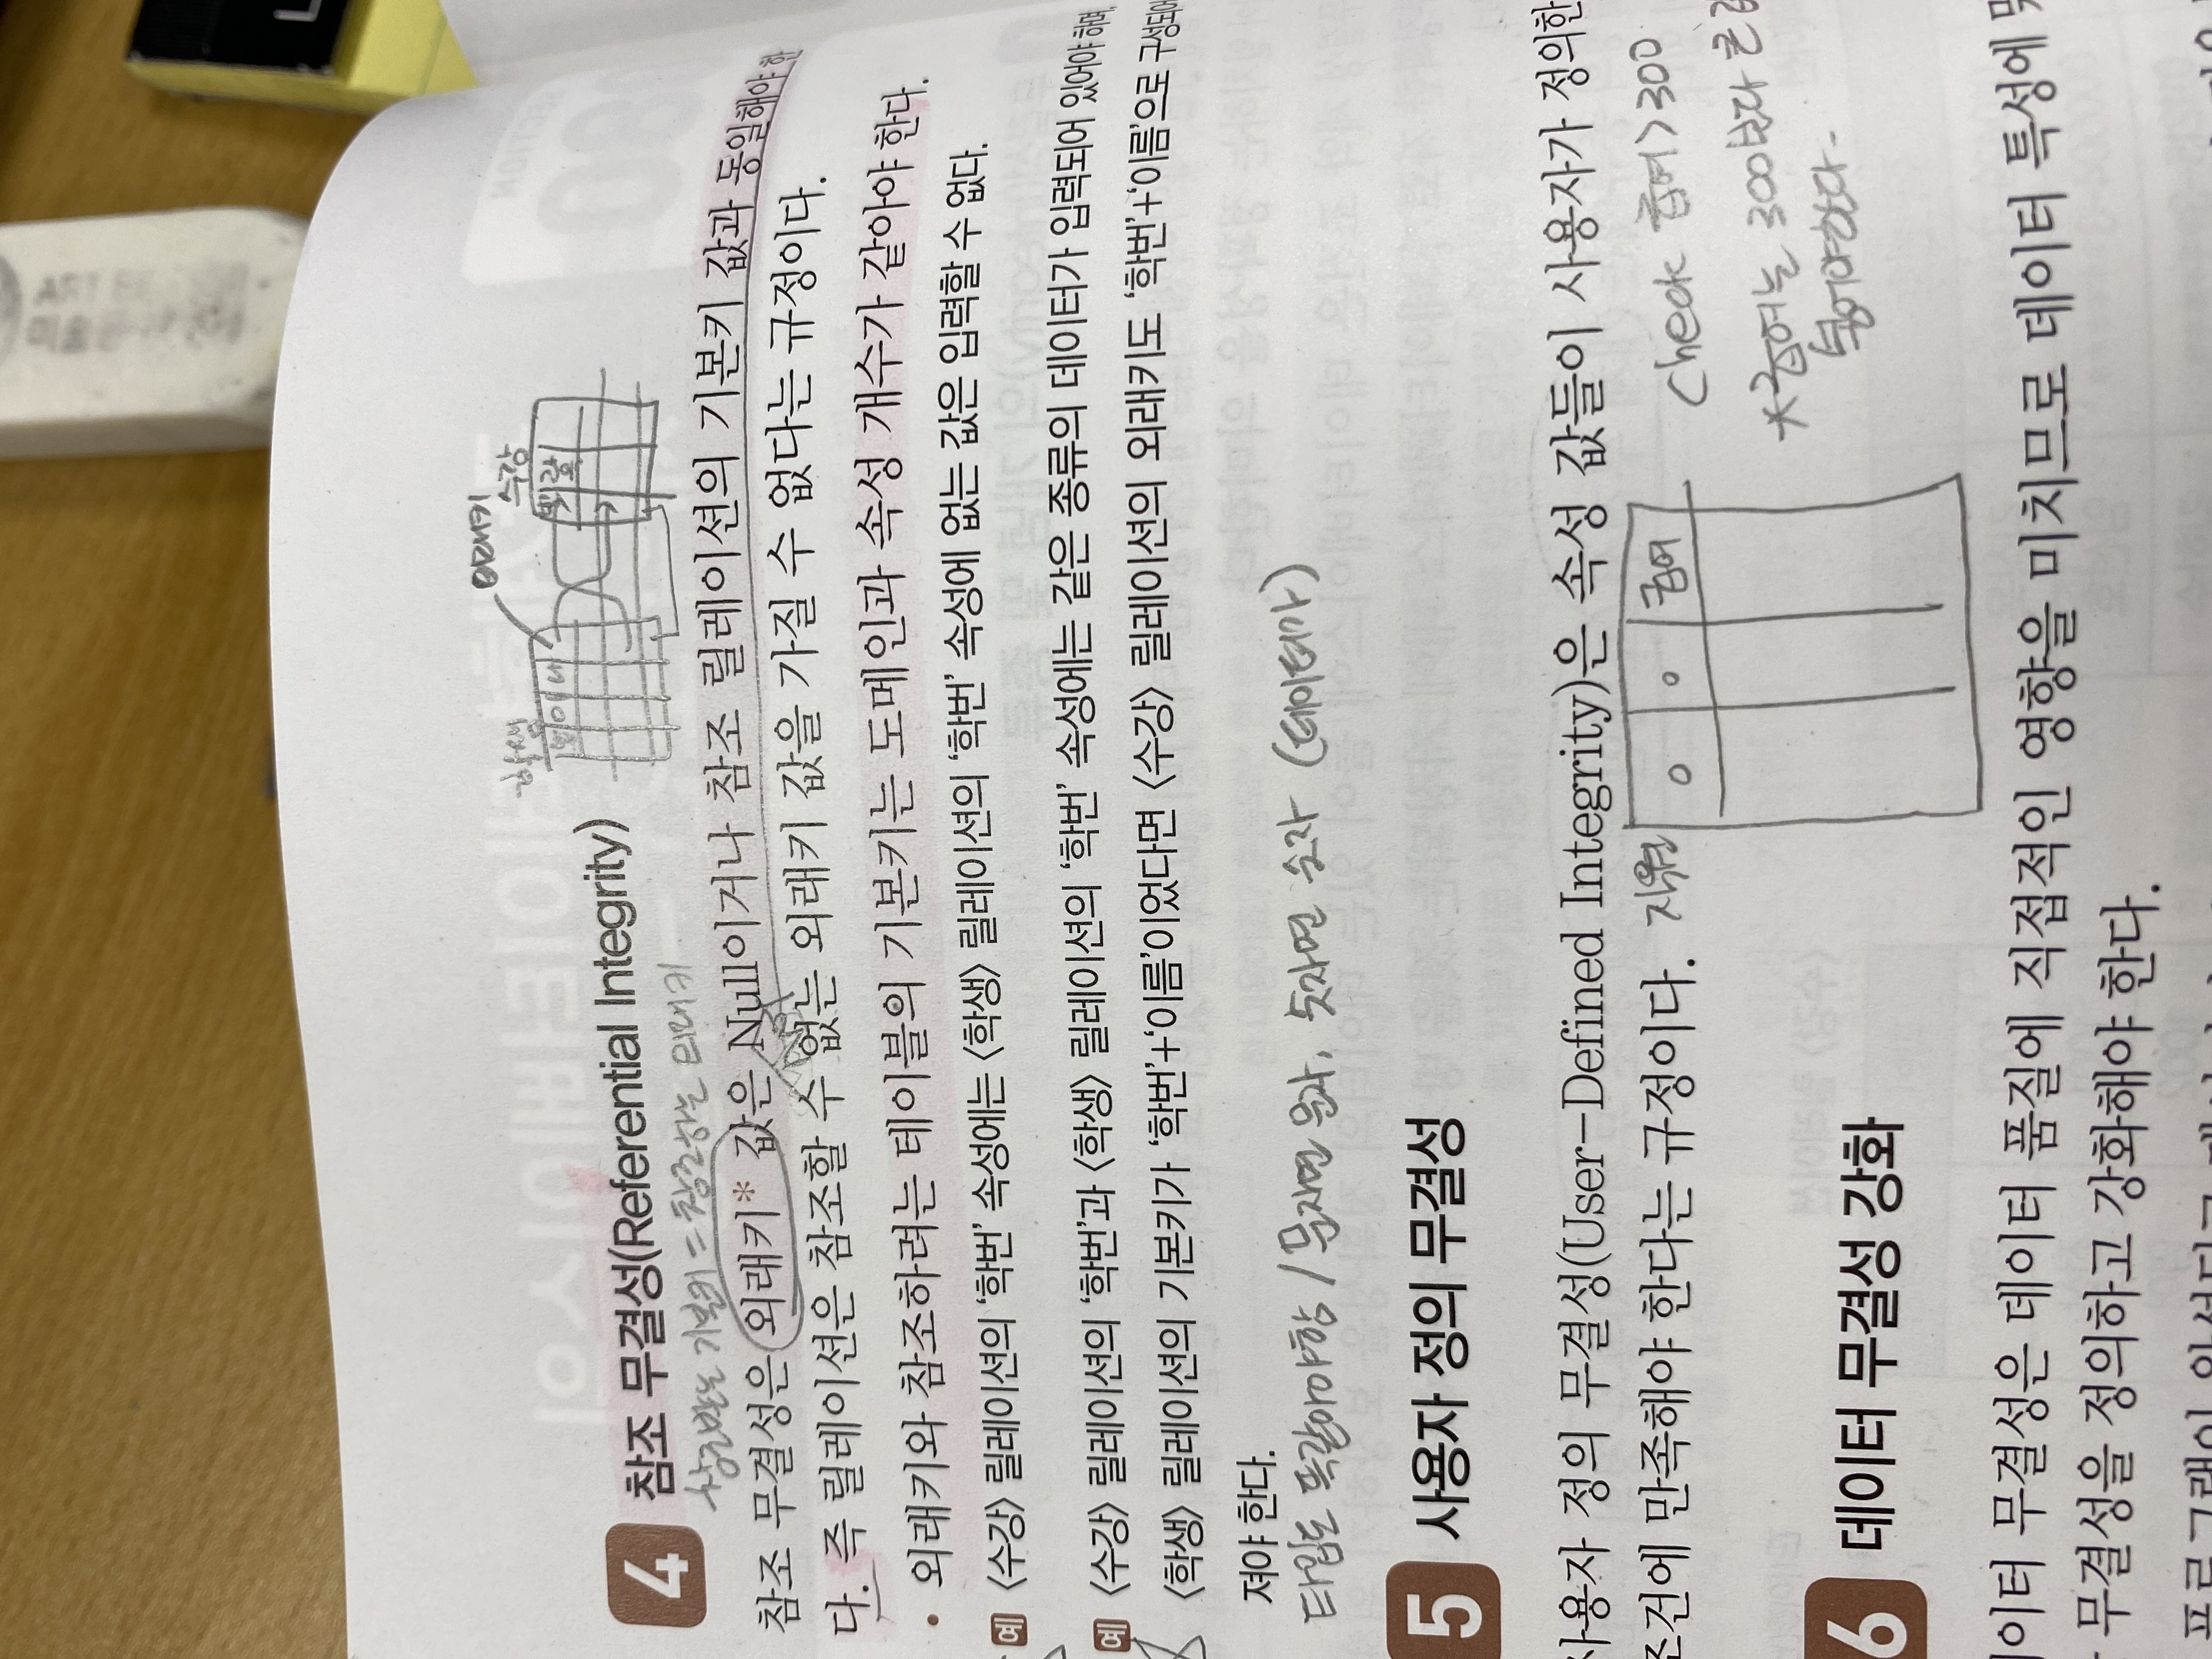 외래키
학생
수강
4 참조 무결성(Referential Integrity)
= 참조하는 외래키
참조 무결성은 외래키* 값은 Null이거나 참조 릴레이션의 기본키 값과 동일해야 한
다. 즉 릴레이션은 참조할 수 없는 외래키 값을 가질 수 없다는 규정이다.
• 외래키와 참조하려는 테이블의 기본키는 도메인과 속성 개수가 같아야 한다.
예 〈수강〉 릴레이션의 ‘학번’ 속성에는 〈학생〉 릴레이션의 ‘학번’ 속성에 없는 값은 입력할 수 없다.
예 〈수강〉 릴레이션의 ‘학번’과 〈학생〉 릴레이션의 ‘학번’ 속성에는 같은 종류의 데이터가 입력되어 있어야 하며,
〈학생〉 릴레이션의 기본키가 ‘학번’+‘이름’이었다면 〈수강〉 릴레이션의 외래키도 ‘학번’+‘이름’으로 구성되어
져야 한다.
타입도 똑같아야함 / 문자면 문자, 숫자면 숫자 (데이터가)
5 사용자 정의 무결성
사용자 정의 무결성(User-Defined Integrity)은 속성 값들이 사용자가 정의한
조건에 만족해야 한다는 규정이다.
직원
급여
Check 급여>300
*급여는 300보다 큰
들어야한다.
6 데이터 무결성 강화
데이터 무결성은 데이터 품질에 직접적인 영향을 미치므로 데이터 특성에 맞
무결성을 정의하고 강화해야 한다.
프로그램이 완성되고